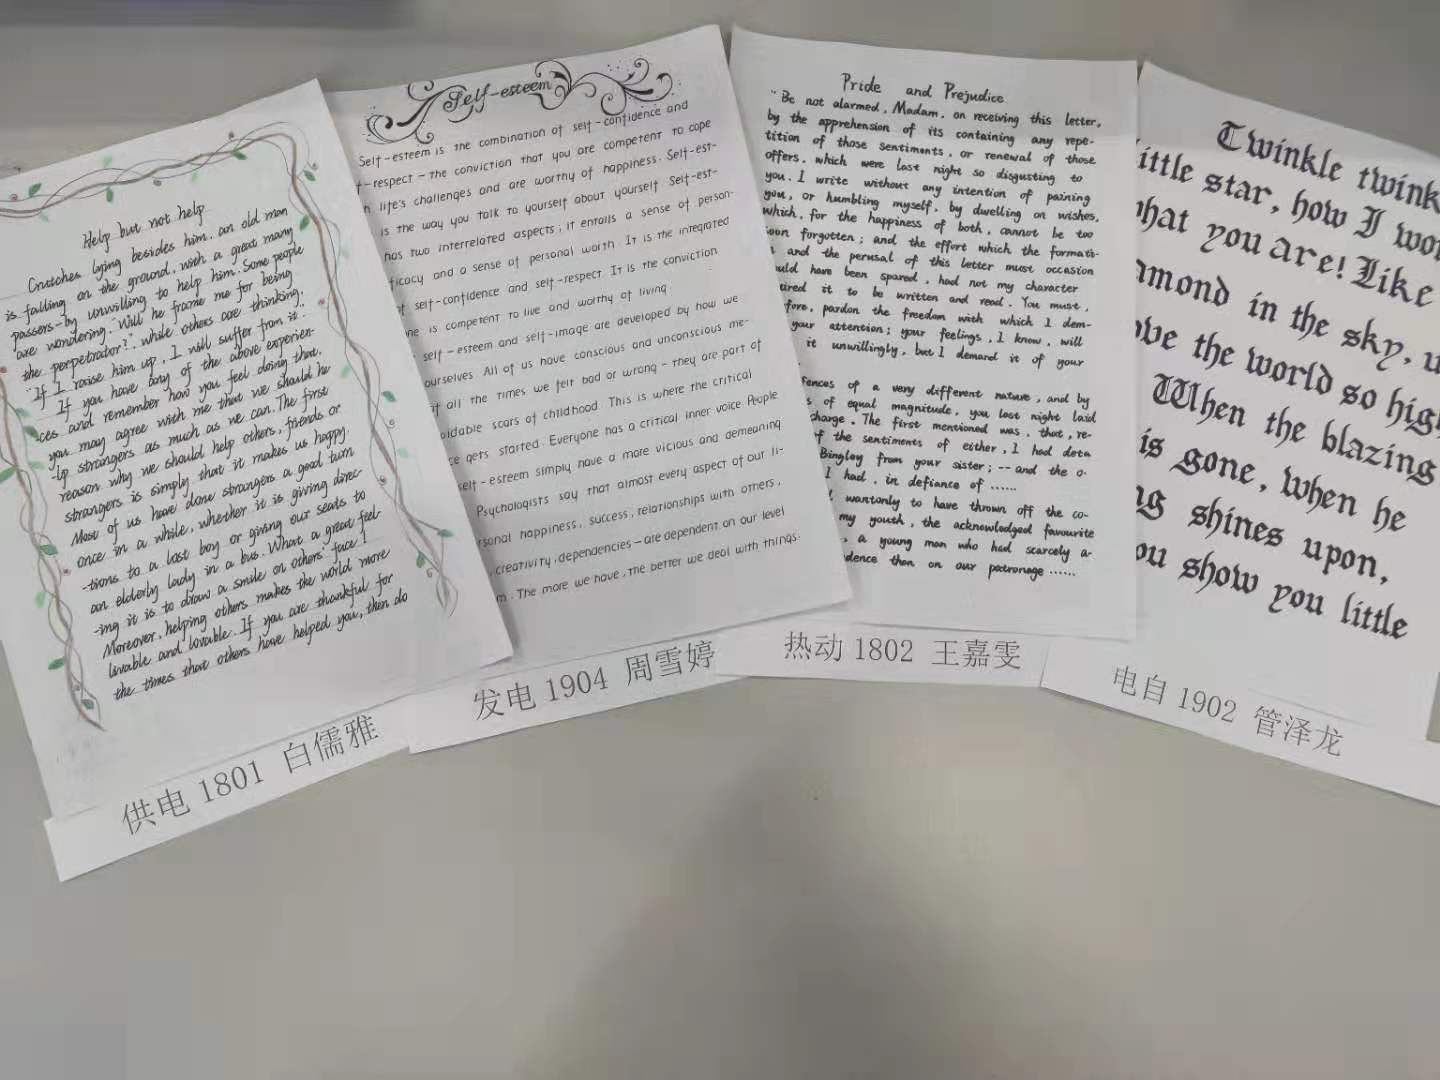 Help but not help
Crutches lying besides him, an old man
is falling on the ground, with a great many
passers-by unwilling to help him. Some people
are wondering: "Will he frame me for being
the perpetrator?", while others are thinking:
"If I raise him up, I will suffer from it".
If you have any of the above experien-
-ces and remember how you feel doing that,
you may agree with me that we should he
-lp strangers as much as we can. The first
reason why we should help others, friends or
strangers is simply that it makes us happy.
Most of us have done strangers a good turn
once in a while, whether it is giving direc-
-tions to a lost boy or giving our seats to
an elderly lady in a bus. What a great feel-
-ing it is to draw a smile on others' face!
Moreover, helping others makes the world more
livable and lovable. If you are thankful for
the times that others have helped you, then do
供电 1801 白儒雅
Self-esteem
Self-esteem is the combination of self-confidence and
-respect - the conviction that you are competent to cope
life's challenges and are worthy of happiness. Self-est-
is the way you talk to yourself about yourself. Self-est-
has two interrelated aspects; it entails a sense of person-
ficacy and a sense of personal worth. It is the integrated
of self-confidence and self-respect. It is the conviction
one is competent to live and worthy of living.
self-esteem and self-image are developed by how we
ourselves. All of us have conscious and unconscious me-
of all the times we felt bad or wrong - they are part of
oidable scars of childhood. This is where the critical
ce gets started. Everyone has a critical inner voice. People
self-esteem simply have a more vicious and demeaning
Psychologists say that almost every aspect of our li-
rsonal happiness, success, relationships with others,
creativity, dependencies – are dependent on our level
m. The more we have, the better we deal with things.
发电 1904 周雪婷
Pride and Prejudice
"Be not alarmed, Madam, on receiving this letter,
by the apprehension of its containing any repe-
tition of those sentiments, or renewal of those
offers, which were last night so disgusting to
you. I write without any intention of paining
you, or humbling myself, by dwelling on wishes,
which, for the happiness of both, cannot be too
soon forgotten; and the effort which the formati-
and the perusal of this letter must occasion
ould have been spared, had not my character
uired it to be written and read. You must,
fore, pardon the freedom with which I dem-
your attention; your feelings, I know, will
it unwillingly, but I demand it of your
fences of a very different nature, and by
s of equal magnitude, you last night laid
charge. The first mentioned was, that, re-
f the sentiments of either, I had deta
Bingley from your sister; -- and the o-
I had, in defiance of ......
wantonly to have thrown off the co-
my youth, the acknowledged favourite
, a young man who had scarcely a-
dence than on our patronage ......
热动 1802 王嘉雯
Twinkle twink
ittle star, how I wo
hat you are! Like
amond in the sky, u
ove the world so high
When the blazing
is gone, when he
ng shines upon,
ou show you little
电自 1902 管泽龙